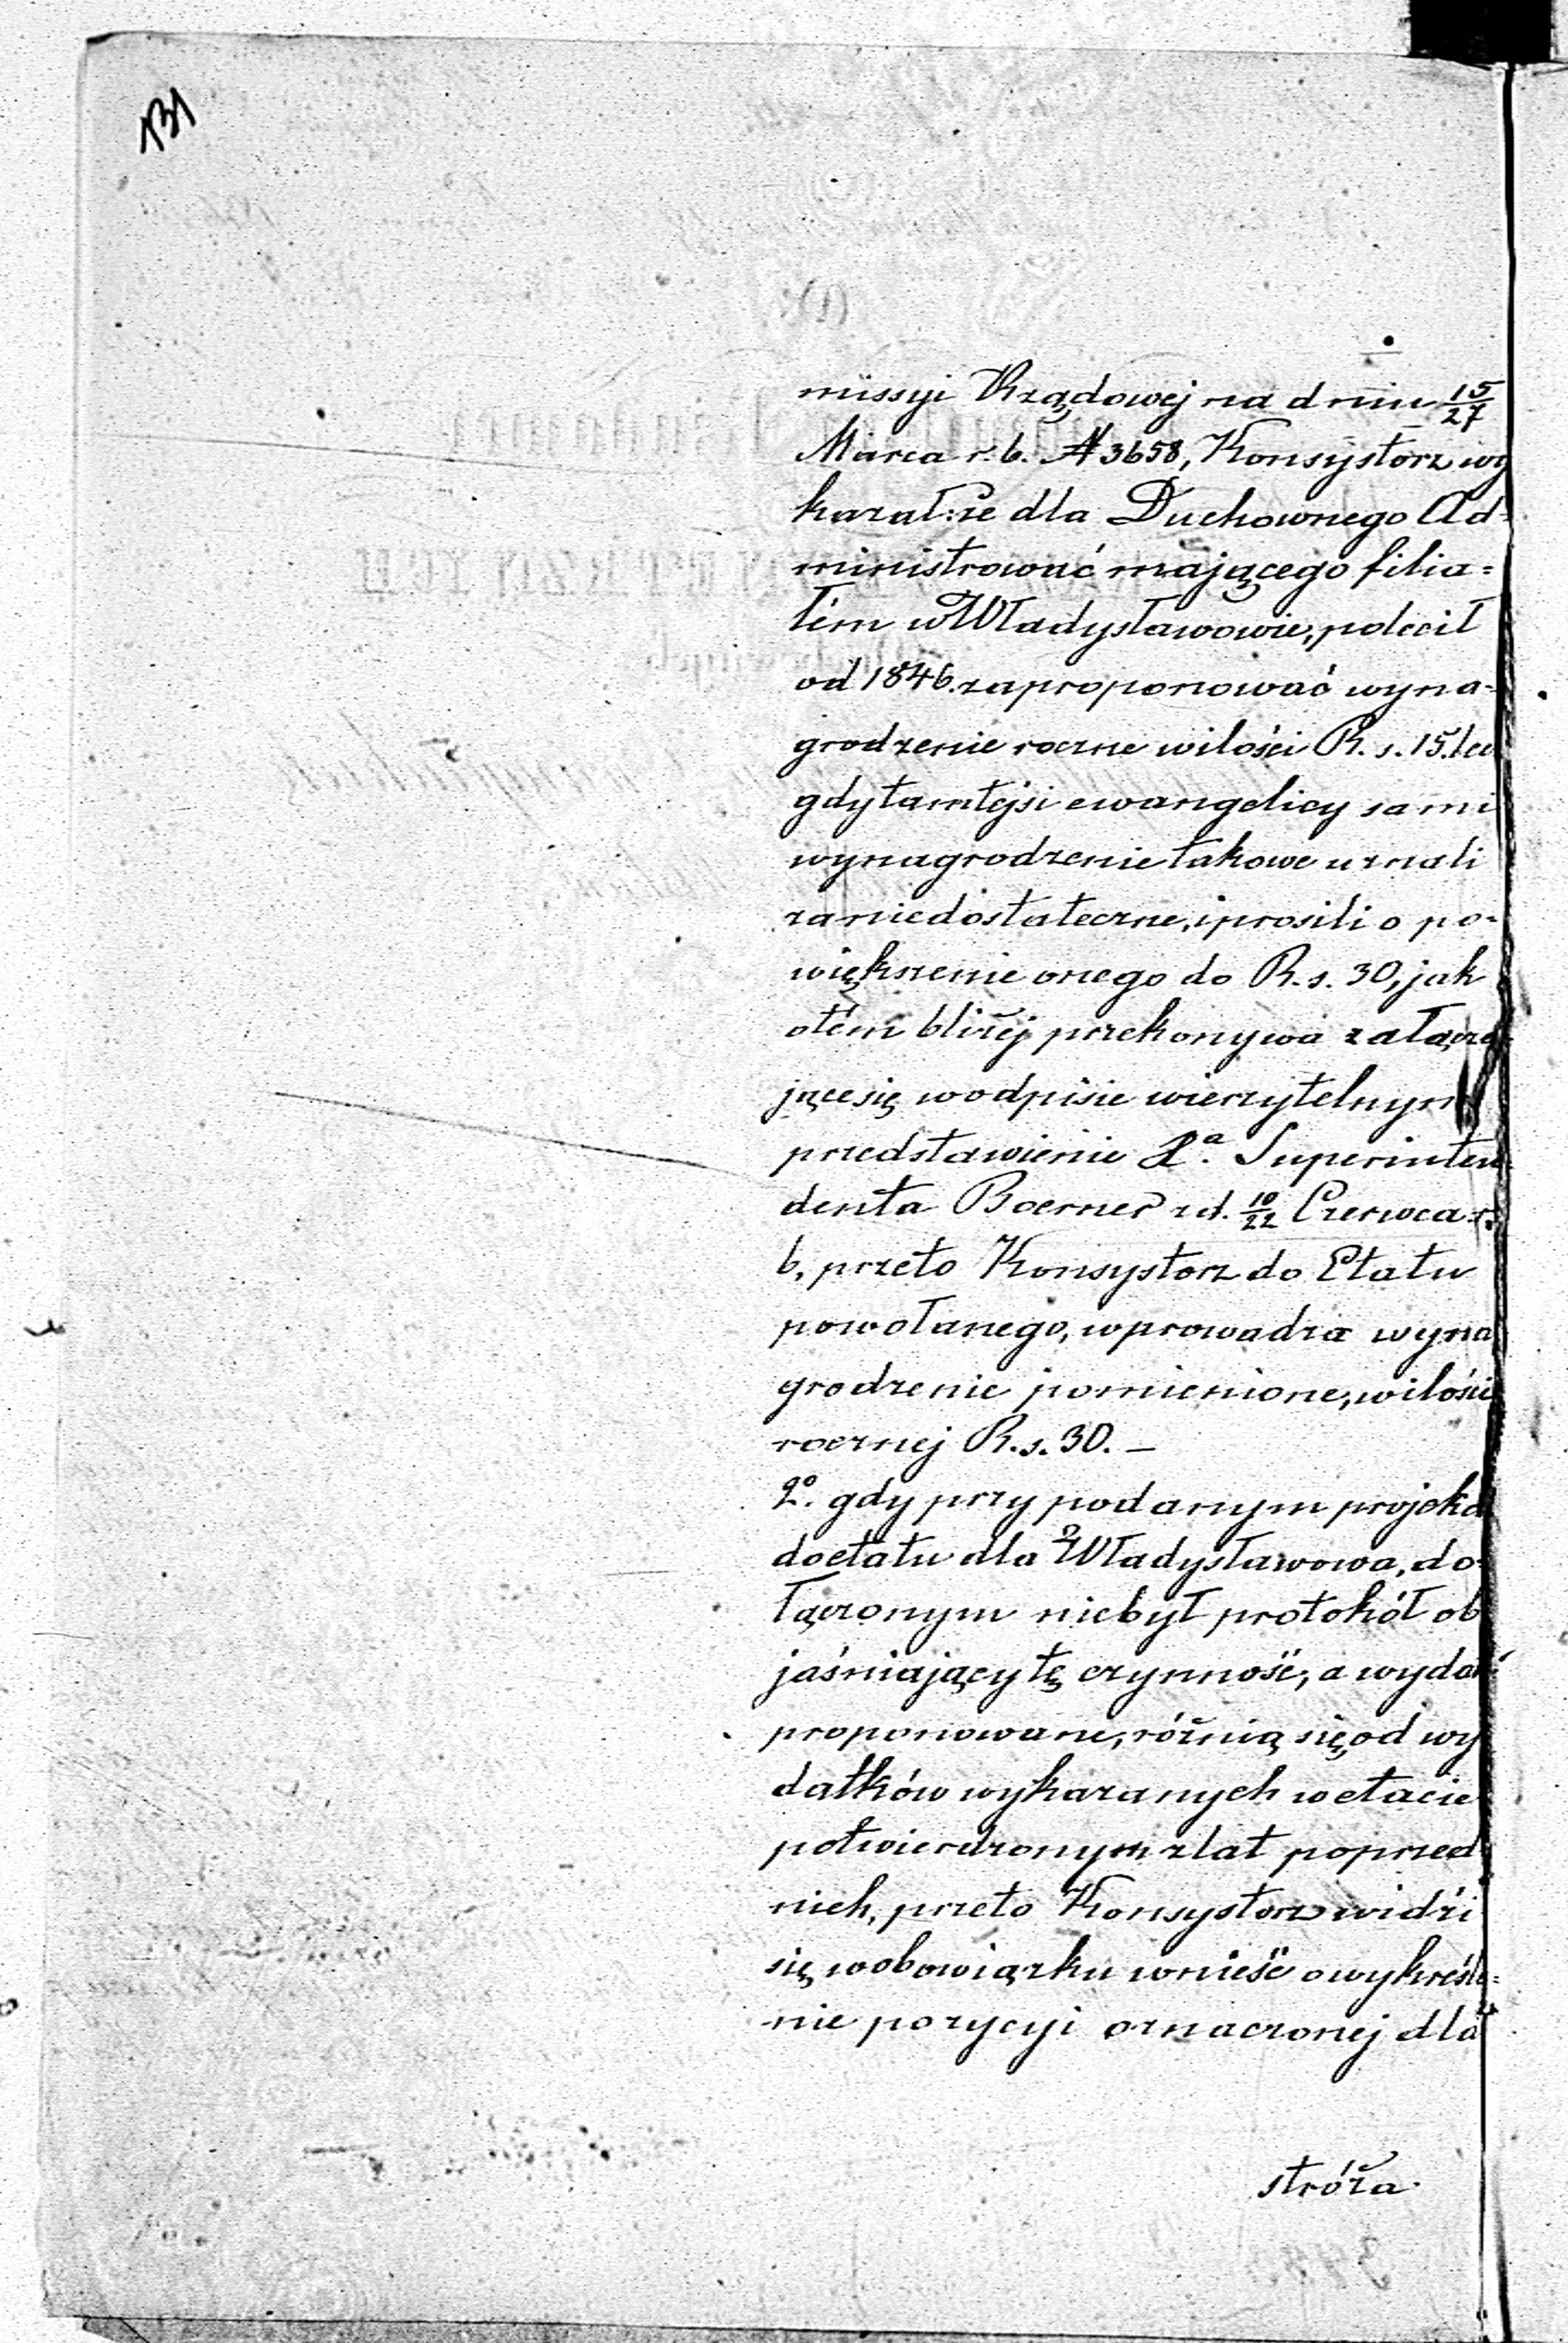 131
missyi Rządowej na dniu 15/27
Marca r. b. N 3658, Konsystorz wy
kazał: że dla Duchownego Ad=
ministrować mającego filia=
łem w Władysławowie, polecił
od 1846. zaproponować wyna=
grodzenie roczne wilości R. s. 15. lecz
gdy tamtejsi ewangelicy sami
wynagrodzenie takowe uznali
za niedostateczne, i prosili o po=
większenie onego do R. s. 30, jak
otém bliżéj przekonywa załącza
jące się w odpisie wierzytelnym
przedstawienie Xa. Superinten
denta Boerner z d. 10/22 Czerwca r.
b, przeto Konsystorz do Etatu
powołanego, wprowadza wyna
grodzenie pomienione, wilości
rocznej R. s. 30. —
2o. gdy przy podanym projekcie
do etatu dla Władysławowa, do=
łączonym niebył protokół ob
jaśniający tę czynność, a wydatki
proponowane, różnią się od wy
datków wykazanych w etacie
potwierdzonym z lat poprzed
nich, przeto Konsystorz widzi
się w obowiązku wnieść o wykreśle=
nie pozycyi oznaczonej dla
stróża